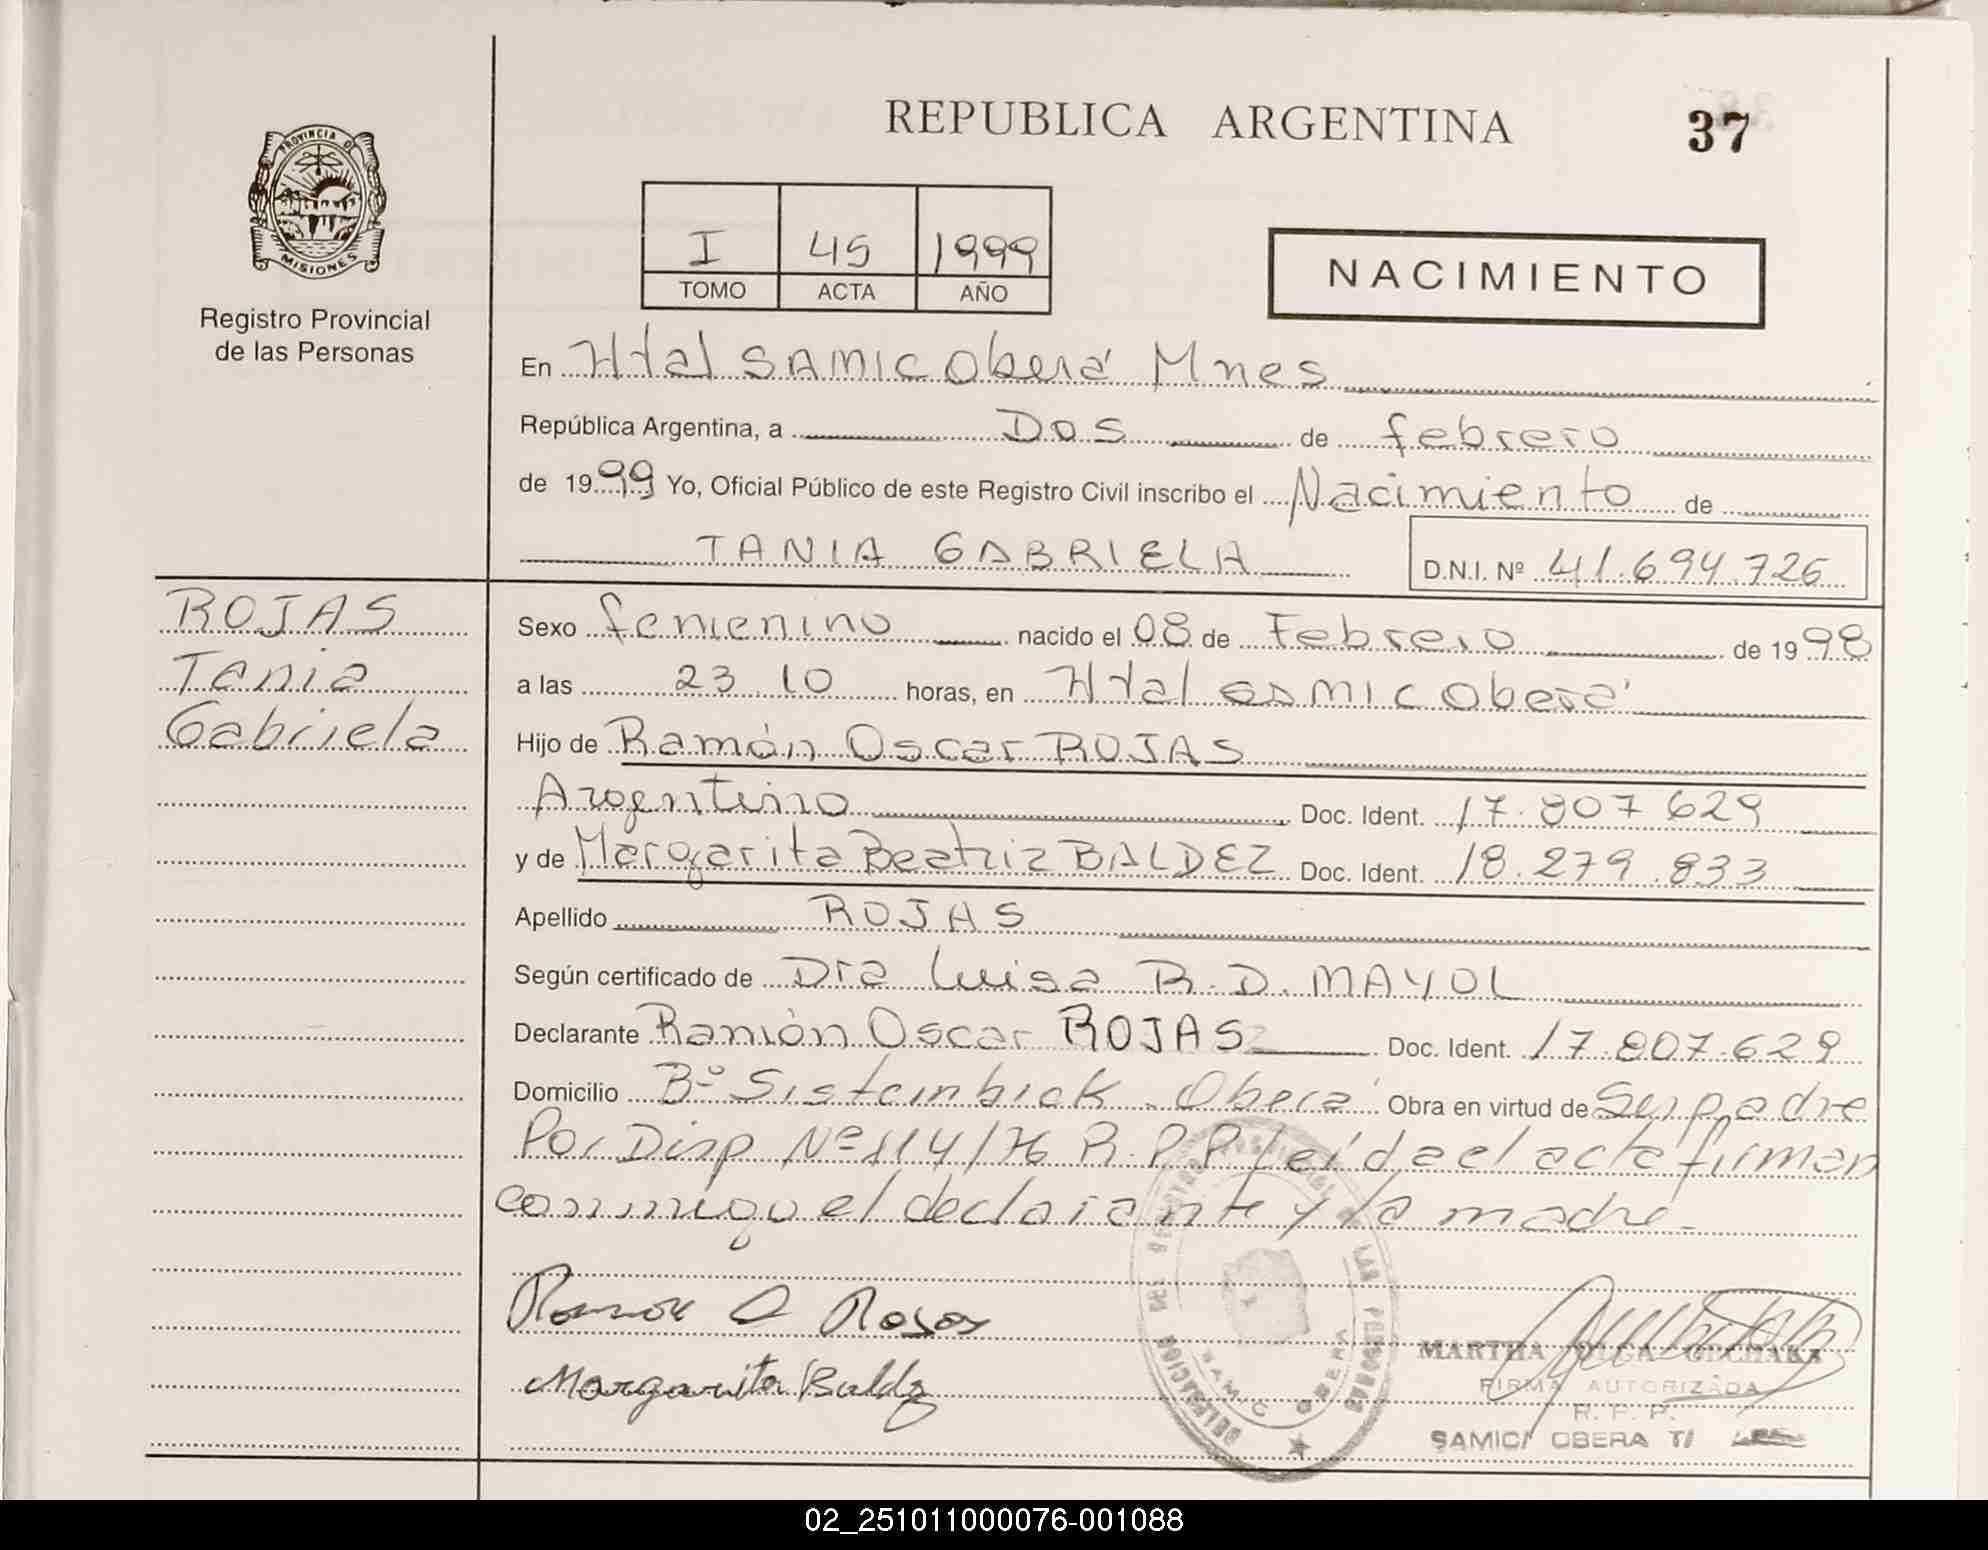 REPUBLICA ARGENTINA
37
PROVINCIA DE
MISIONES
Registro Provincial
de las Personas
I 45 1999
TOMO ACTA AÑO
NACIMIENTO
En Htal SAMIC Oberá Mnes
República Argentina, a Dos de febrero
de 1999 Yo, Oficial Público de este Registro Civil inscribo el Nacimiento de
TANIA GABRIELA D.N.I. Nº 41.694.726
ROJAS
Tania
Gabriela
Sexo femenino nacido el 08 de Febrero de 1998
a las 23 10 horas, en Htal SAMIC Oberá
Hijo de Ramón Oscar ROJAS
Argentino Doc. Ident. 17.807 629
y de Margarita Beatriz BALDEZ Doc. Ident. 18.279.833
Apellido ROJAS
Según certificado de Dra Luisa R.D. MAYOL
Declarante Ramón Oscar ROJAS Doc. Ident. 17.807.629
Domicilio Bº Sisteinbick - Oberá Obra en virtud de Ser padre
Por Disp Nº 114/76 R.P.P. Leída el acta firman
conmigo el declarante y la madre-
Ramon O Rojas
Margarita Baldez
DELEGACION DEL REGISTRO PROVINCIAL DE LAS PERSONAS
SAMIC OBERA
MARTHA OLGA
FIRMA AUTORIZADA
R. P. P.
SAMIC/ OBERA T/
02_251011000076-001088